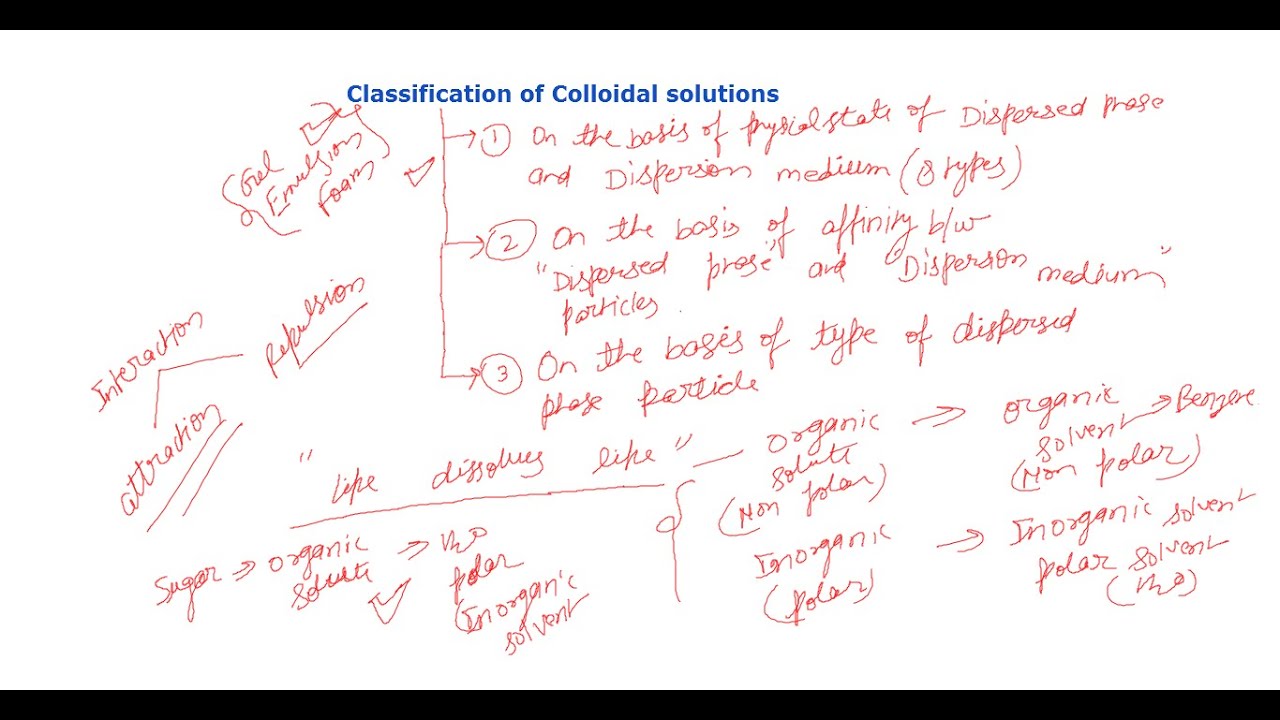 Classification of Colloidal solutions
① On the basis of physical state of Dispersed phase
and Dispersion medium (8 types)
② On the basis of affinity b/w
"Dispersed phase" and "Dispersion medium"
particles.
③ On the basis of type of dispersed
phase particle
Gel
Emulsion
Foam
Interaction
Repulsion
attraction
"like dissolves like"
Organic → organic
solute solvent → Benzene
(Non polar) (Non polar)
Inorganic → Inorganic solvent
(polar) polar solvent
(H2O)
Sugar → organic → H2O
solute polar
(Inorganic
solvent